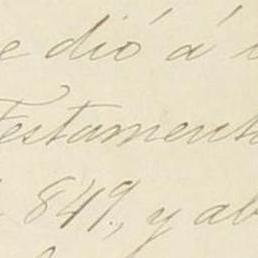 e dió á
Testamento
849., y ab